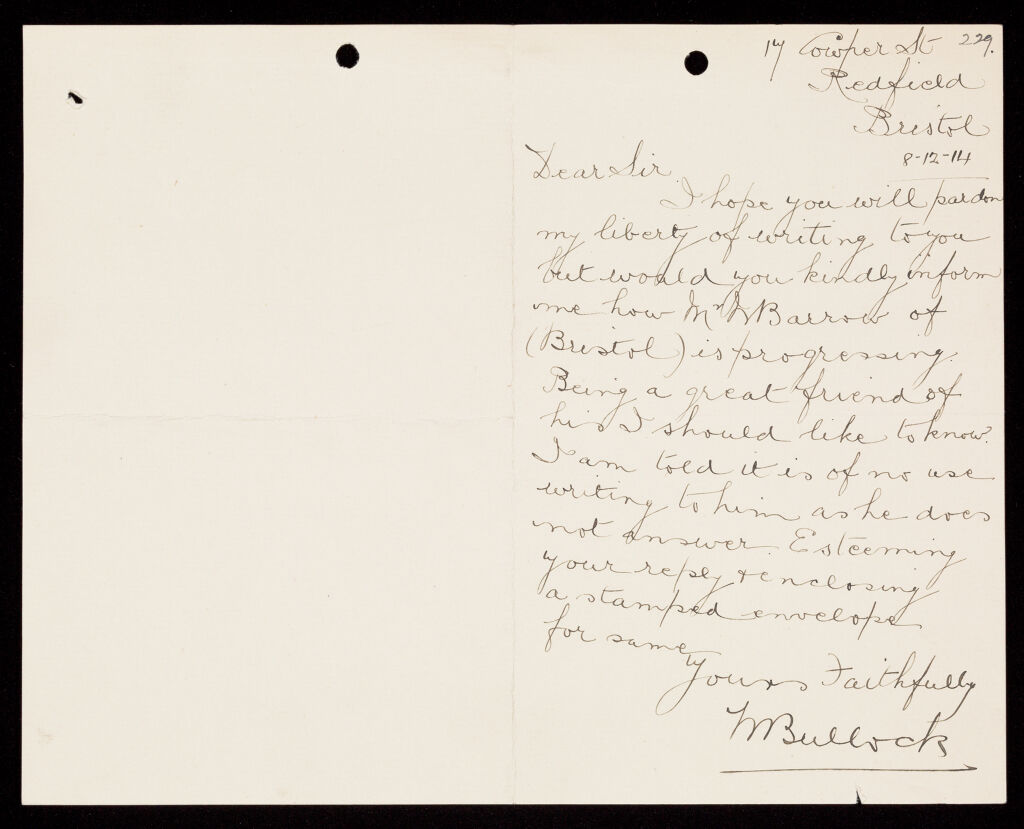 17 Cowper St 229.
Redfield
Bristol
8-12-14
Dear Sir
I hope you will pardon
my liberty of writing to you
but would you kindly inform
me how Mr W Barrow of
(Bristol) is progressing.
Being a great friend of
his I should like to know.
I am told it is of no use
writing to him as he does
not answer. Esteeming
your reply & enclosing
a stamped envelope
for same
Yours Faithfully
W Bullock